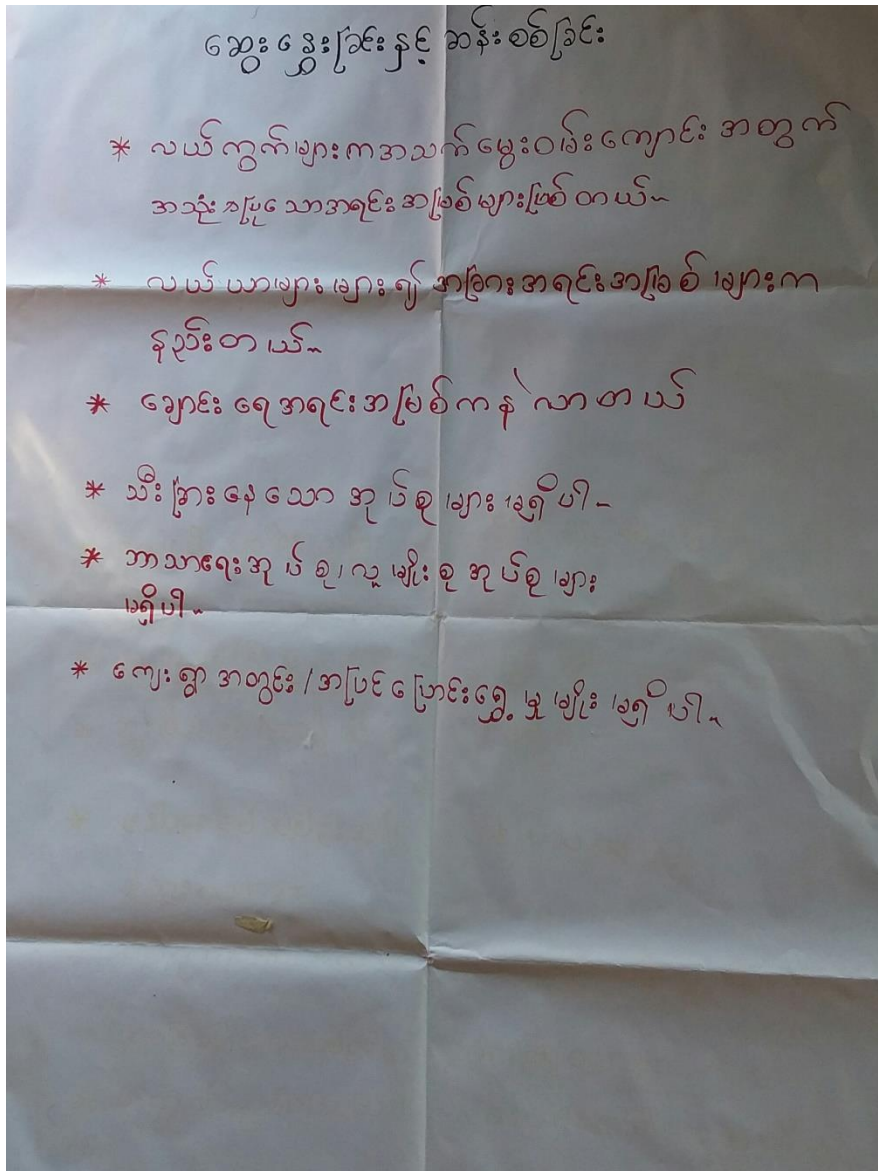 ဆွေးနွေးခြင်းနှင့် ဆန်းစစ်ခြင်း
* လယ်ကွက်များကအသက်မွေးဝမ်းကျောင်းအတွက်
အသုံးပြုသောအရင်းအမြစ်များဖြစ်တယ်။
* လယ်ယာများများ၍ အခြားအရင်းအမြစ်များက
နည်းတယ်။
* ချောင်းရေအရင်းအမြစ်ကနဲလာတယ်
* သီးခြားနေသော အုပ်စုများ မရှိပါ။
* ဘာသာရေးအုပ်စု၊ လူမျိုးစုအုပ်စုများ
မရှိပါ။
* ကျေးရွာအတွင်း/အပြင် ပြောင်းရွှေ့မှုမျိုး မရှိပါ။